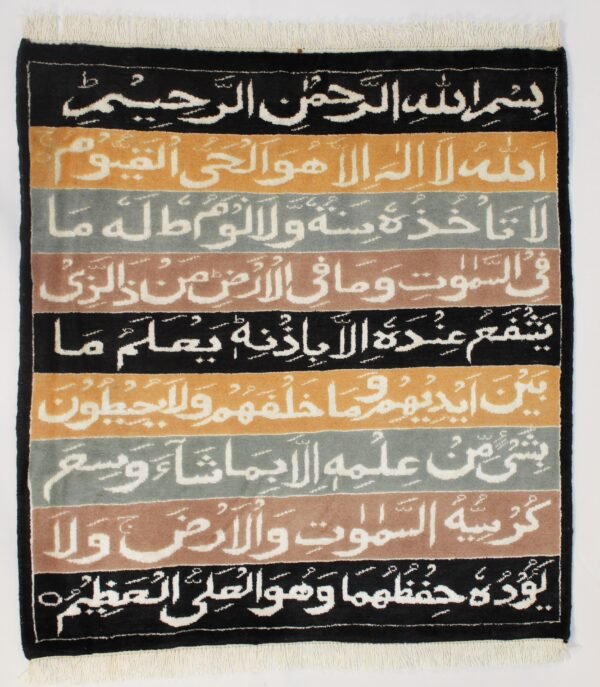 بِسْمِ اللهِ الرَّحْمٰنِ الرَّحِيْمِ ط
اَللهُ لَا اِلٰهَ اِلَّا هُوَ الْحَیُّ الْقَيُّوْمُ
لَا تَاْخُذُهٗ سِنَةٌ وَّلَا نَوْمٌ ط لَهٗ مَا
فِی السَّمٰوٰتِ وَمَا فِی الْاَرْضِ ط مَنْ ذَا الَّذِیْ
يَشْفَعُ عِنْدَهٗ اِلَّا بِاِذْنِهٖ ط يَعْلَمُ مَا
بَيْنَ اَيْدِيْهِمْ وَمَا خَلْفَهُمْ وَلَا يُحِيْطُوْنَ
بِشَیْءٍ مِّنْ عِلْمِهٖ اِلَّا بِمَا شَآءَ وَسِعَ
كُرْسِيُّهُ السَّمٰوٰتِ وَالْاَرْضَ ج وَلَا
يَؤُدُهٗ حِفْظُهُمَا وَهُوَ الْعَلِیُّ الْعَظِيْمُ ○